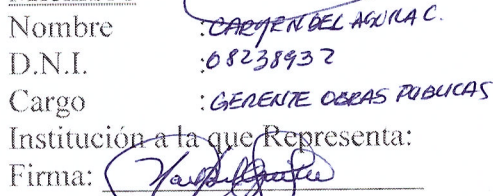 Nombre : CARMEN DEL AGUILA C.
D.N.I. : 08238932
Cargo : GERENTE OBRAS PUBLICAS
Institución a la que Representa:
Firma: